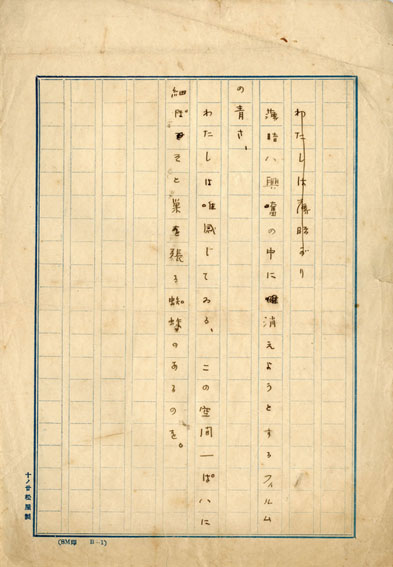 わたしは薄暗がり
薄暗い興奮の中に消えようとするフィルム
の青さ、
わたしは唯感じてゐる、この空間一ぱいに
細ぼそと巣を張る蜘蛛のあるのを。
十ノ廿 松屋製
B-1)